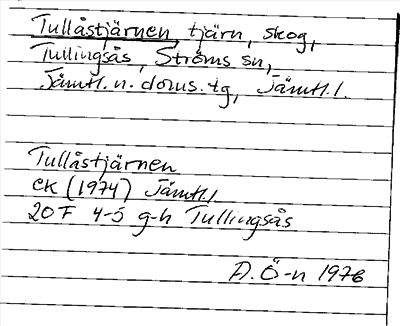 Tullåstjärnen, tjärn, skog,
Tullingsås, Ströms sn,
Jämtl. n. doms. tg, Jämtl. l.
Tullåstjärnen
ek (1974) Jämtl. l
20 F 4-5 g-h Tullingsås
A. Ö-n 1976